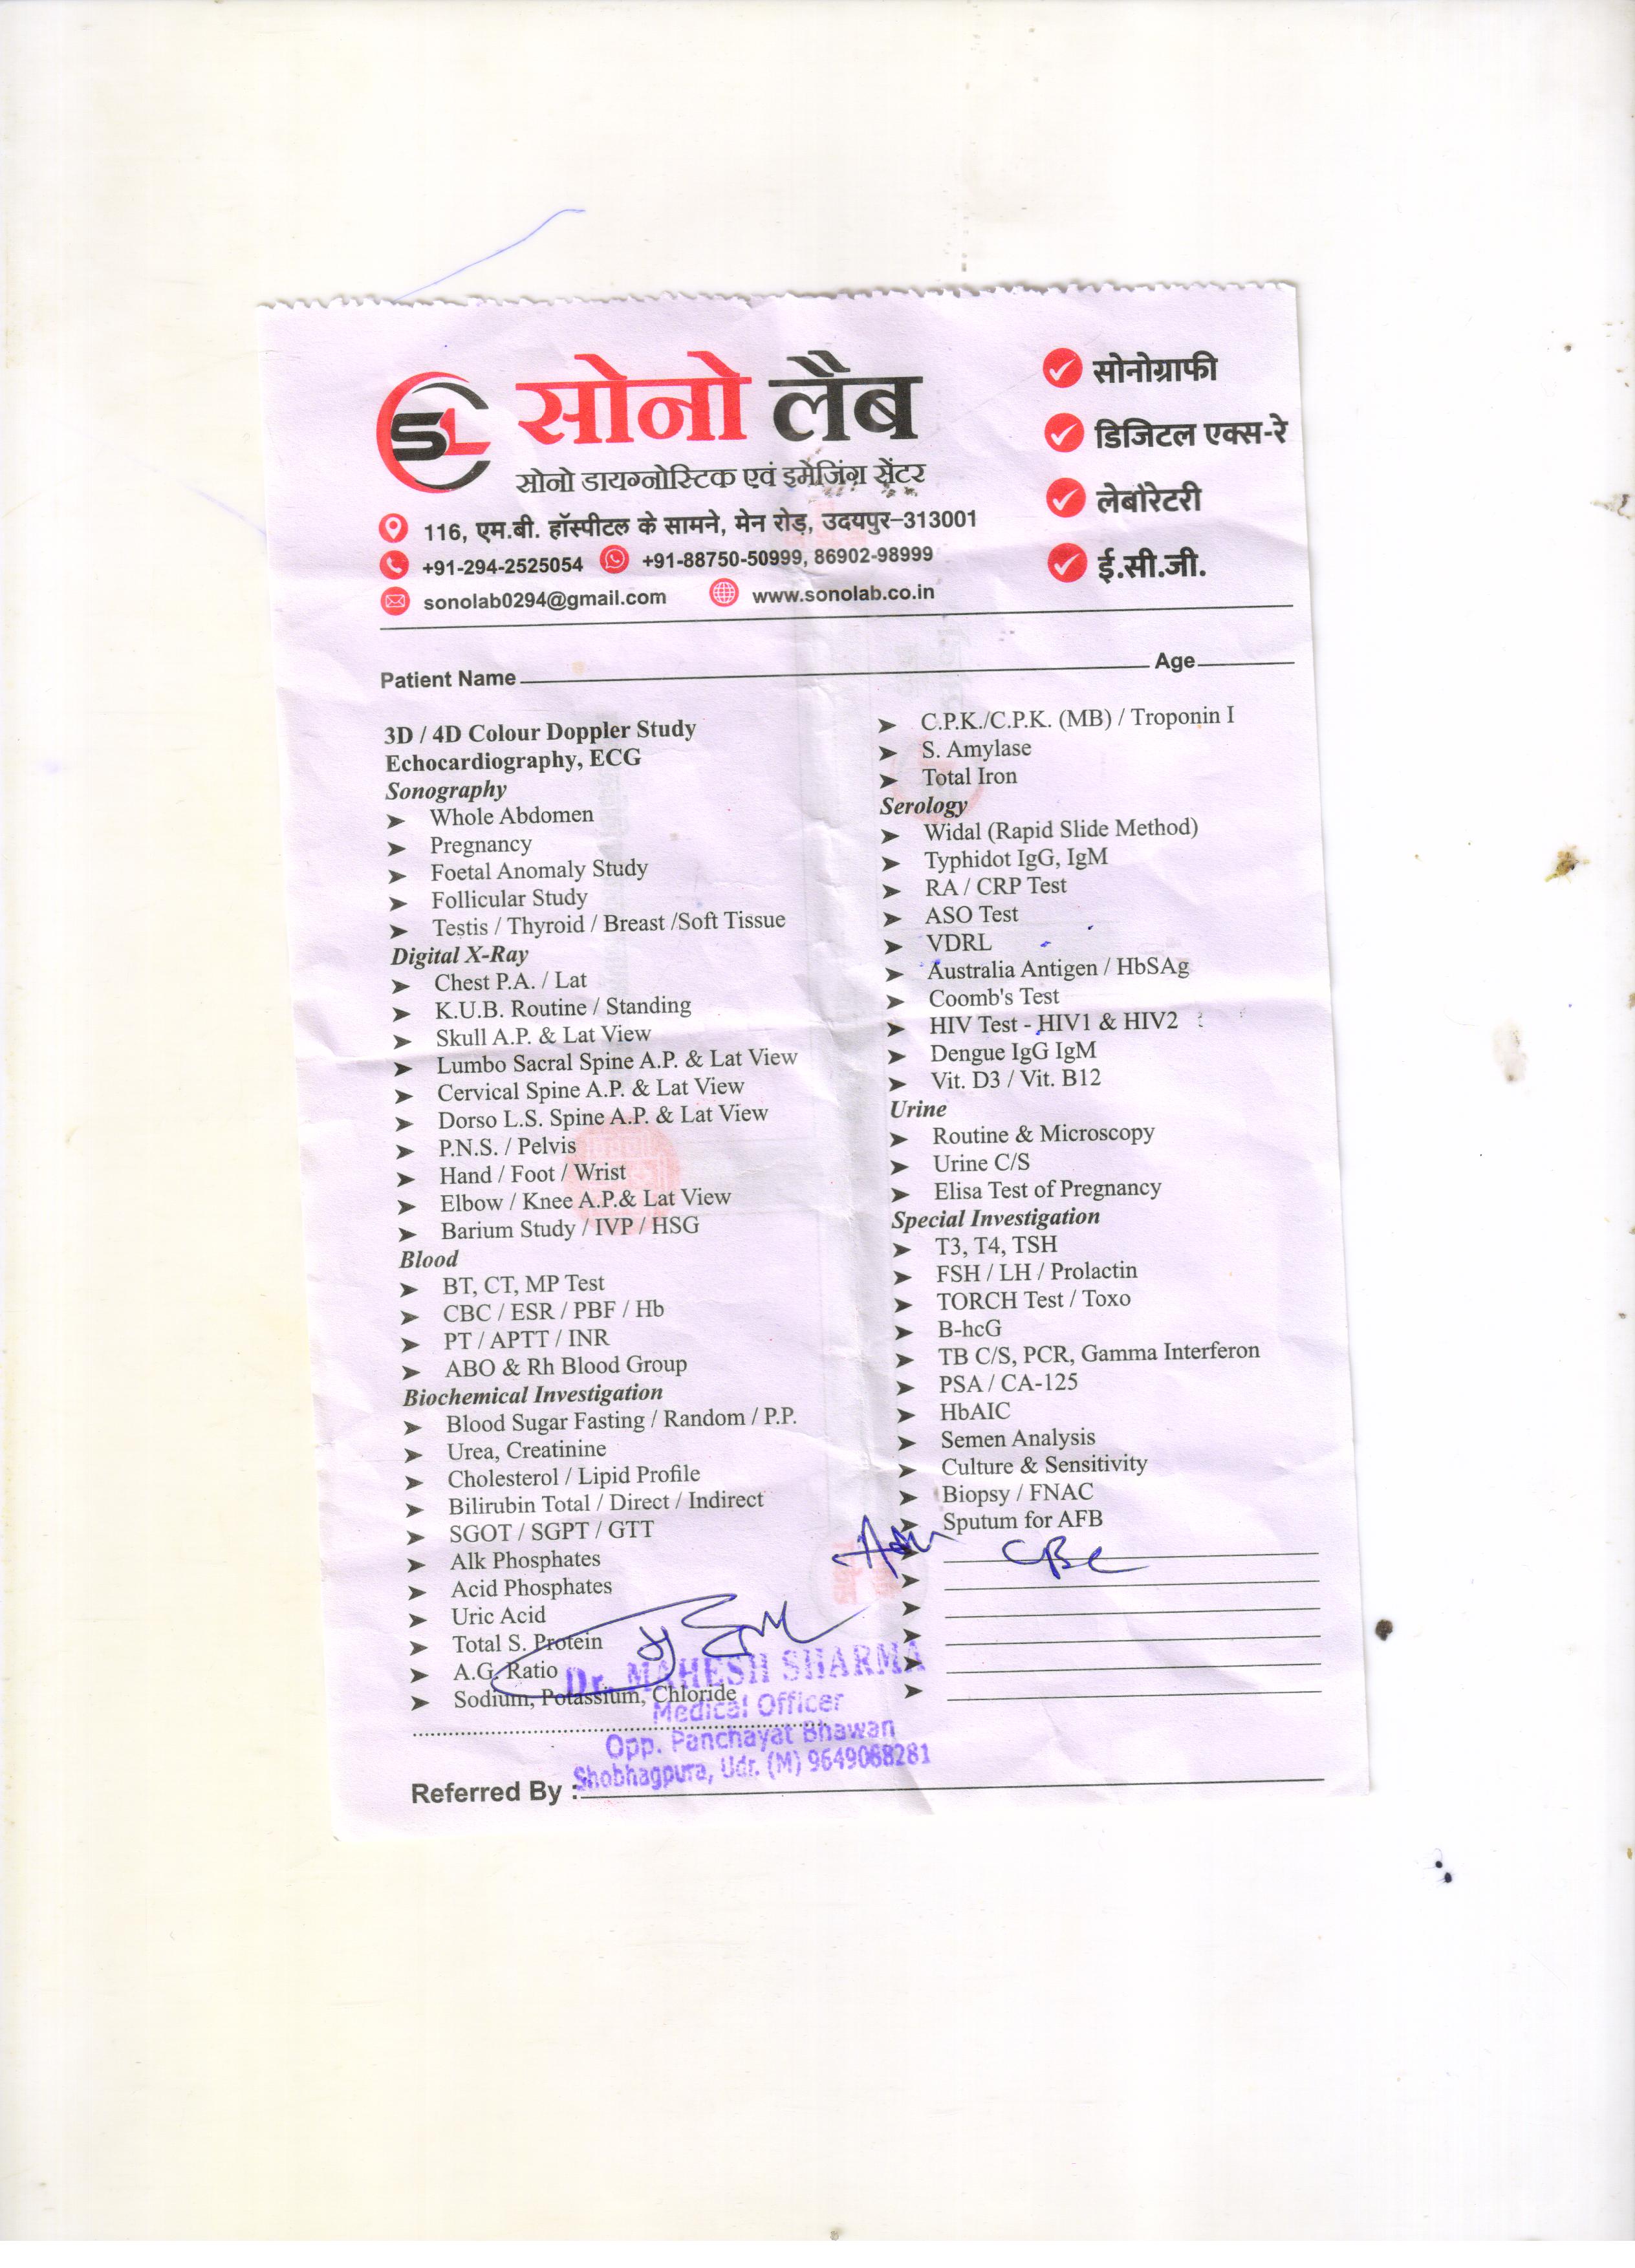 SL
सोनो लैब
सोनो डायग्नोस्टिक एवं इमेजिंग सेंटर
116, एम.बी. हॉस्पीटल के सामने, मेन रोड़, उदयपुर-313001
+91-294-2525054 +91-88750-50999, 86902-98999
sonolab0294@gmail.com www.sonolab.co.in
सोनोग्राफी
डिजिटल एक्स-रे
लेबोरेटरी
ई.सी.जी.
Patient Name Age
3D / 4D Colour Doppler Study
Echocardiography, ECG
Sonography
Whole Abdomen
Pregnancy
Foetal Anomaly Study
Follicular Study
Testis / Thyroid / Breast /Soft Tissue
Digital X-Ray
Chest P.A. / Lat
K.U.B. Routine / Standing
Skull A.P. & Lat View
Lumbo Sacral Spine A.P. & Lat View
Cervical Spine A.P. & Lat View
Dorso L.S. Spine A.P. & Lat View
P.N.S. / Pelvis
Hand / Foot / Wrist
Elbow / Knee A.P.& Lat View
Barium Study / IVP / HSG
Blood
BT, CT, MP Test
CBC / ESR / PBF / Hb
PT / APTT / INR
ABO & Rh Blood Group
Biochemical Investigation
Blood Sugar Fasting / Random / P.P.
Urea, Creatinine
Cholesterol / Lipid Profile
Bilirubin Total / Direct / Indirect
SGOT / SGPT / GTT
Alk Phosphates
Acid Phosphates
Uric Acid
Total S. Protein
A.G. Ratio
Sodium, Potassium, Chloride
C.P.K./C.P.K. (MB) / Troponin I
S. Amylase
Total Iron
Serology
Widal (Rapid Slide Method)
Typhidot IgG, IgM
RA / CRP Test
ASO Test
VDRL
Australia Antigen / HbSAg
Coomb's Test
HIV Test - HIV1 & HIV2
Dengue IgG IgM
Vit. D3 / Vit. B12
Urine
Routine & Microscopy
Urine C/S
Elisa Test of Pregnancy
Special Investigation
T3, T4, TSH
FSH / LH / Prolactin
TORCH Test / Toxo
B-hcG
TB C/S, PCR, Gamma Interferon
PSA / CA-125
HbAIC
Semen Analysis
Culture & Sensitivity
Biopsy / FNAC
Sputum for AFB
CBC
Dr. MAHESH SHARMA
Medical Officer
Opp. Panchayat Bhawan
Shobhagpura, Udr. (M) 9649068281
Referred By :